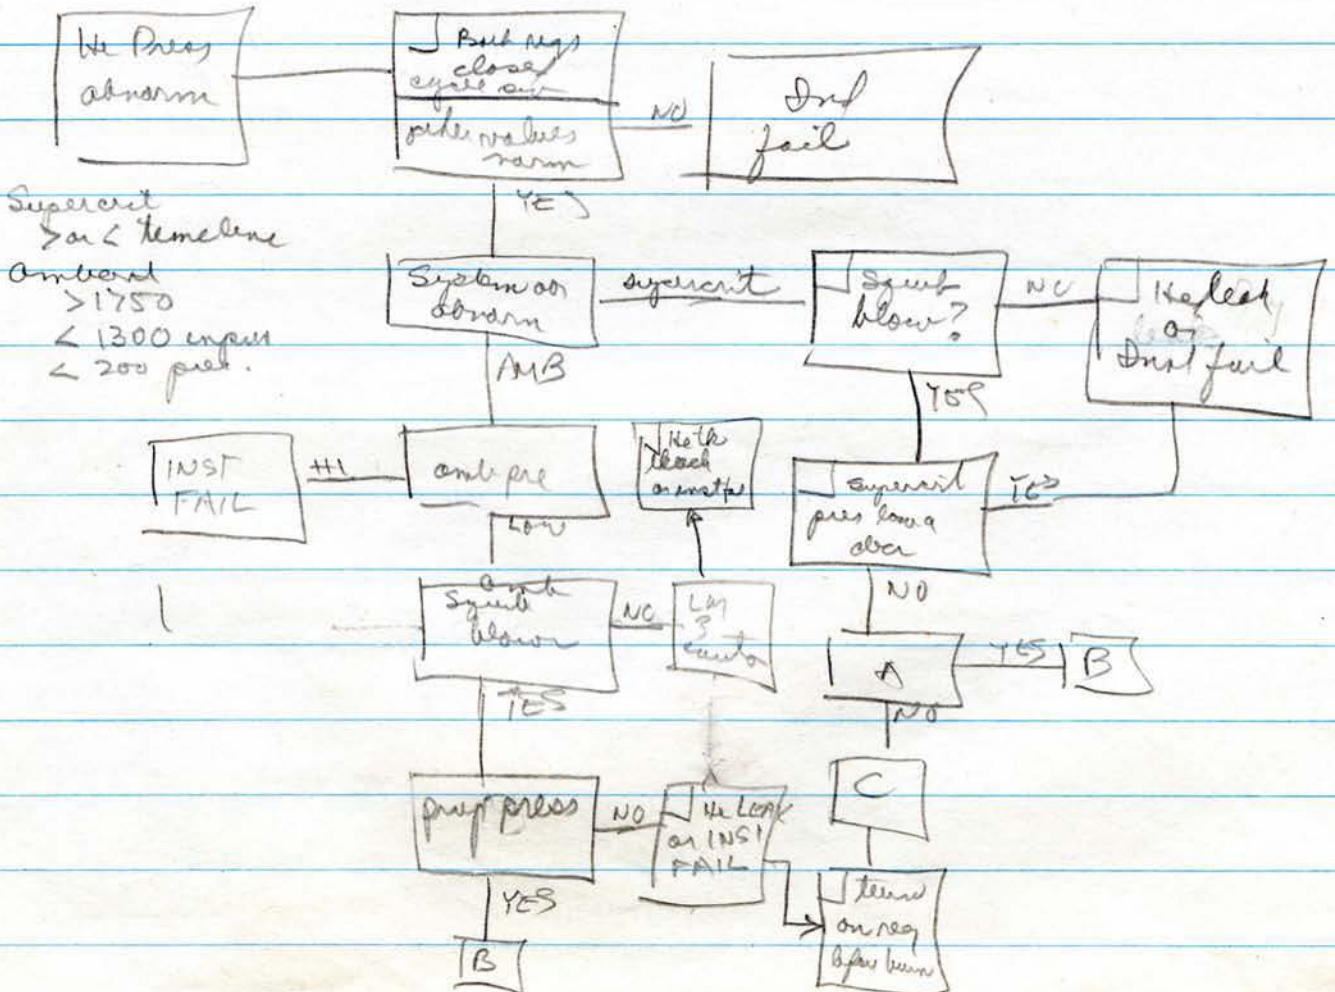 He Press
abnorm
Both regs
close
cycle
other values
norm
NO
Inst
fail
YES
Supercrit
> or < timeline
Ambient
>1750
< 1300
< 200
System
abnorm
supercrit
Squib
blow?
NO
He leak
or
Inst fail
AMB
YES
INST
FAIL
HI
amb pre
LOW
He
leak
Supercrit
pres
YES
NO
amb
Squib
blown
NO
3
YES
A
YES
B
NO
prop press
NO
He LEAK
or INST
FAIL
C
YES
B
turn
on reg
before burn